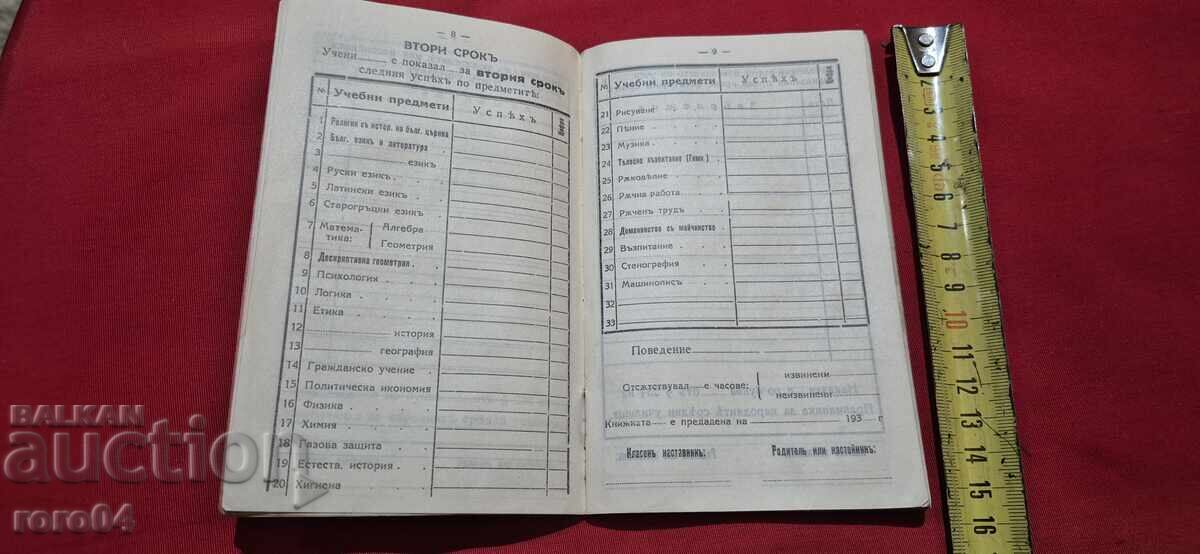 — 8 —
ВТОРИ СРОКЪ
Учени____ е показал__ за втория срокъ
следния успѣхъ по предметитѣ:
№ Учебни предмети Успѣхъ
1 Религия съ истор. на бълг. църква
2 Бълг. езикъ и литература
3 езикъ
4 Руски езикъ
5 Латински езикъ
6 Старогръцки езикъ
7 Матема-тика: Алгебра
Геометрия
8 Дескриптивна геометрия
9 Психология
10 Логика
11 Етика
12 история
13 география
14 Гражданско учение
15 Политическа икономия
16 Физика
17 Химия
18 Газова защита
19 Естеств. история
20 Хигиена
— 9 —
№ Учебни предмети Успѣхъ
21 Рисуване
22 Пѣние
23 Музика
24 Тѣлесно възпитание (Гимн.)
25 Рѫкодѣлие
26 Рѫчна работа
27 Рѫченъ трудъ
28 Домакинство съ майчинство
29 Възпитание
30 Стенография
31 Машинопись
32
33
Поведение
Отсѫтствувал__е часове: извинени
неизвинени
Книжката__ е предадена на ____ 193__ г
Класенъ наставникъ: Родитель или настойникъ:
2 3 4 5 6 7 8 9 10 11 12 13 14 15 16
BALKAN
auction
roro04